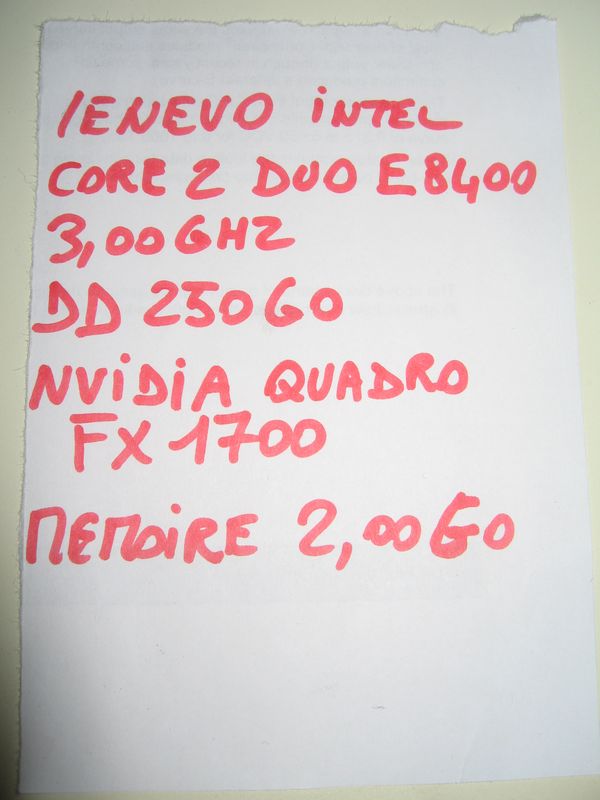 lENEVO iNTEL
CORE 2 DUO E8400
3,00GHZ
DD 250GO
NViDiA QUADRO
FX 1700
MEMOiRE 2,00Go